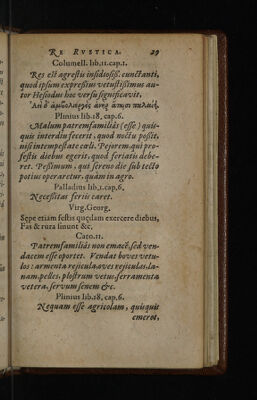 RE RVSTICA. 29
Columell. lib.11.cap.1.
Res est agrestis insidiosiss. cunctanti,
quod ipsum expressius vetustissimus au-
tor Hesiodus hoc versu significavit.
Plinius lib.18, cap.6.
Malum patremfamiliâs (esse) quis-
quis interdiu fecerit, quod noctu posit,
nisi intempestate cœli. Pejorem, qui pro-
festis diebus egerit, quod feriatis debe-
ret. Pessimum, qui sereno die sub tecto
potius operaretur, quàm in agro.
Palladius lib.1.cap.6,
Necessitas feriis caret.
Virg. Georg.
Sepe etiam festis quędam exercere diebus,
Fas & rura sinunt &c.
Cato.11.
Patremfamiliâs non emacē, sed ven-
dacem esse oportet. Vendat boves vetu-
los: armenta rejicula, oves rejiculas, la-
nam, pelles, plostrum vetus, ferramenta
vetera, servum senem &c.
Plinius lib.18, cap.6.
Nequam esse agricolam, quisquis
emeret,